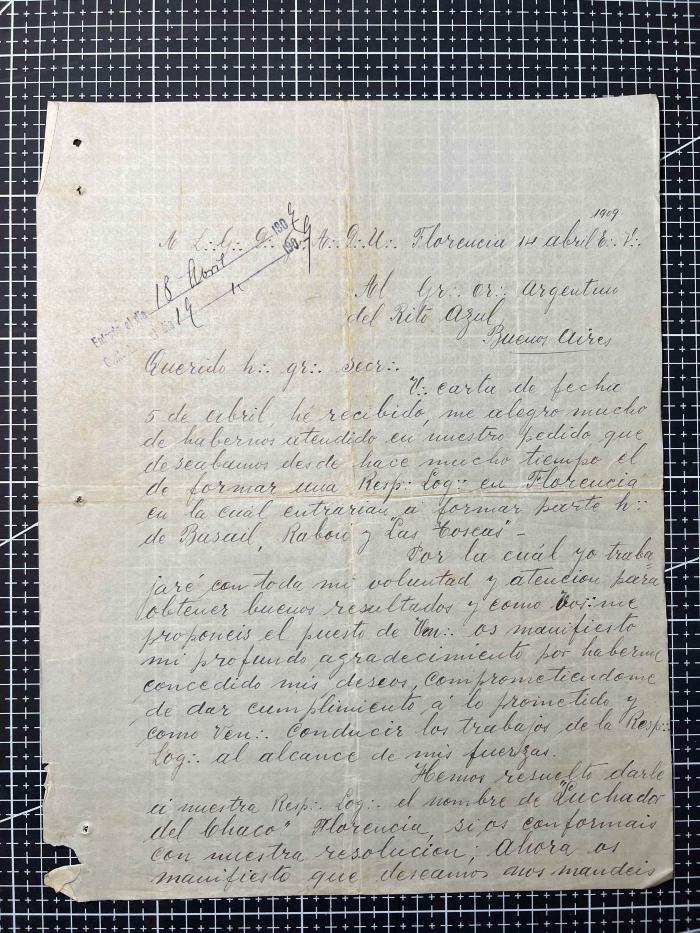 1909
A L∴ G∴ D∴ A∴ D∴ U∴ Florencia 14 abril E∴ V∴
Entrada el día 18 Abril 1909
19 " 1909
Al Gr∴ Or∴ Argentino
del Rito Azul
Buenos Aires
Querido h∴ gr∴ secr∴
V∴ carta de fecha
5 de abril, hé recibido, me alegro mucho
de habernos atendido en nuestro pedido, que
deseabamos desde hace mucho tiempo el
de formar una Resp∴ Log∴ en Florencia
en la cuál entrarian a formar parte h∴
de Basail, Rabon y "Las Toscas" –
Por la cuál yo traba=
jaré con toda mi voluntad y atencion para
obtener buenos resultados y como Vos∴ me
proponeis el puesto de Ven∴ os manifiesto
mi profundo agradecimiento por haberme
concedido mis deseos, comprometiendome
de dar cumplimiento á lo prometido y
como Ven∴ conducir los trabajos de la Resp∴
Log∴ al alcance de mis fuerzas.
Hemos resuelto darle
a nuestra Resp∴ Log∴ el nombre de "Luchador
del Chaco" Florencia, si os conformais
con nuestra resolucion; Ahora os
manifiesto que deseamos nos mandeis